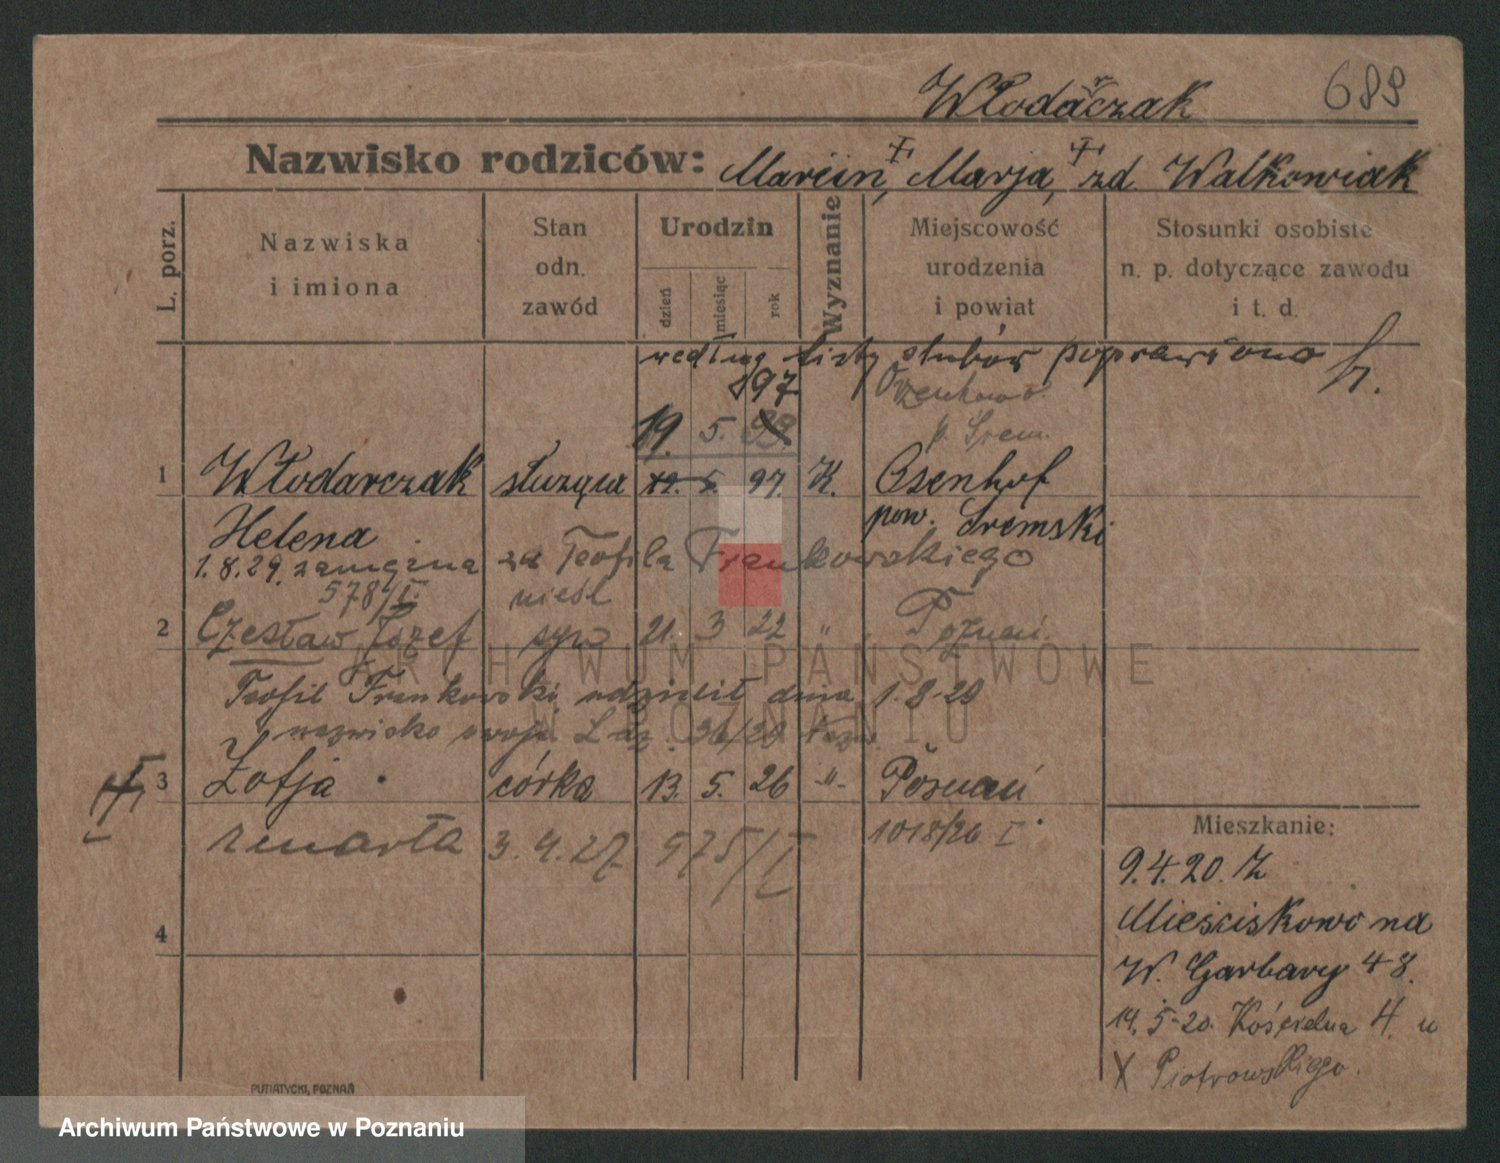 Włodarczak 689
Nazwisko rodziców: Marcin, Marja, zd. Walkowiak
L. porz.
Nazwiska
i imiona
Stan
odn.
zawód
Urodzin
dzień
miesiąc
rok
Wyznanie
Miejscowość
urodzenia
i powiat
Stosunki osobiste
n. p. dotyczące zawodu
i t. d.
według listy ślubów poprawiono
897
19. 5.
p. Śrem.
1 Włodarczak służąca 19. 5. 97. K. Osenhof
Helena pow. Śremski
1.8.29. zamężna za Teofila Frankowskiego
578/I. nieśl
2 Czesław Józef syn 21. 3 22 " Poznań
Teofil Frankowski udzielił dnia 1.8.29
nazwisko swoje 36/29
3 Zofja córka 13. 5. 26 -"- Poznań
zmarła 3.4.27 975/I 1018/26 I
4
Mieszkanie:
9.4.20. z
Mieściskowo na
W. Garbary 48.
14.5.20. Kościelna 4. u
X Piotrowskiego.
PUTIATYCKI, POZNAŃ
ARCHIWUM PAŃSTWOWE
W POZNANIU
Archiwum Państwowe w Poznaniu